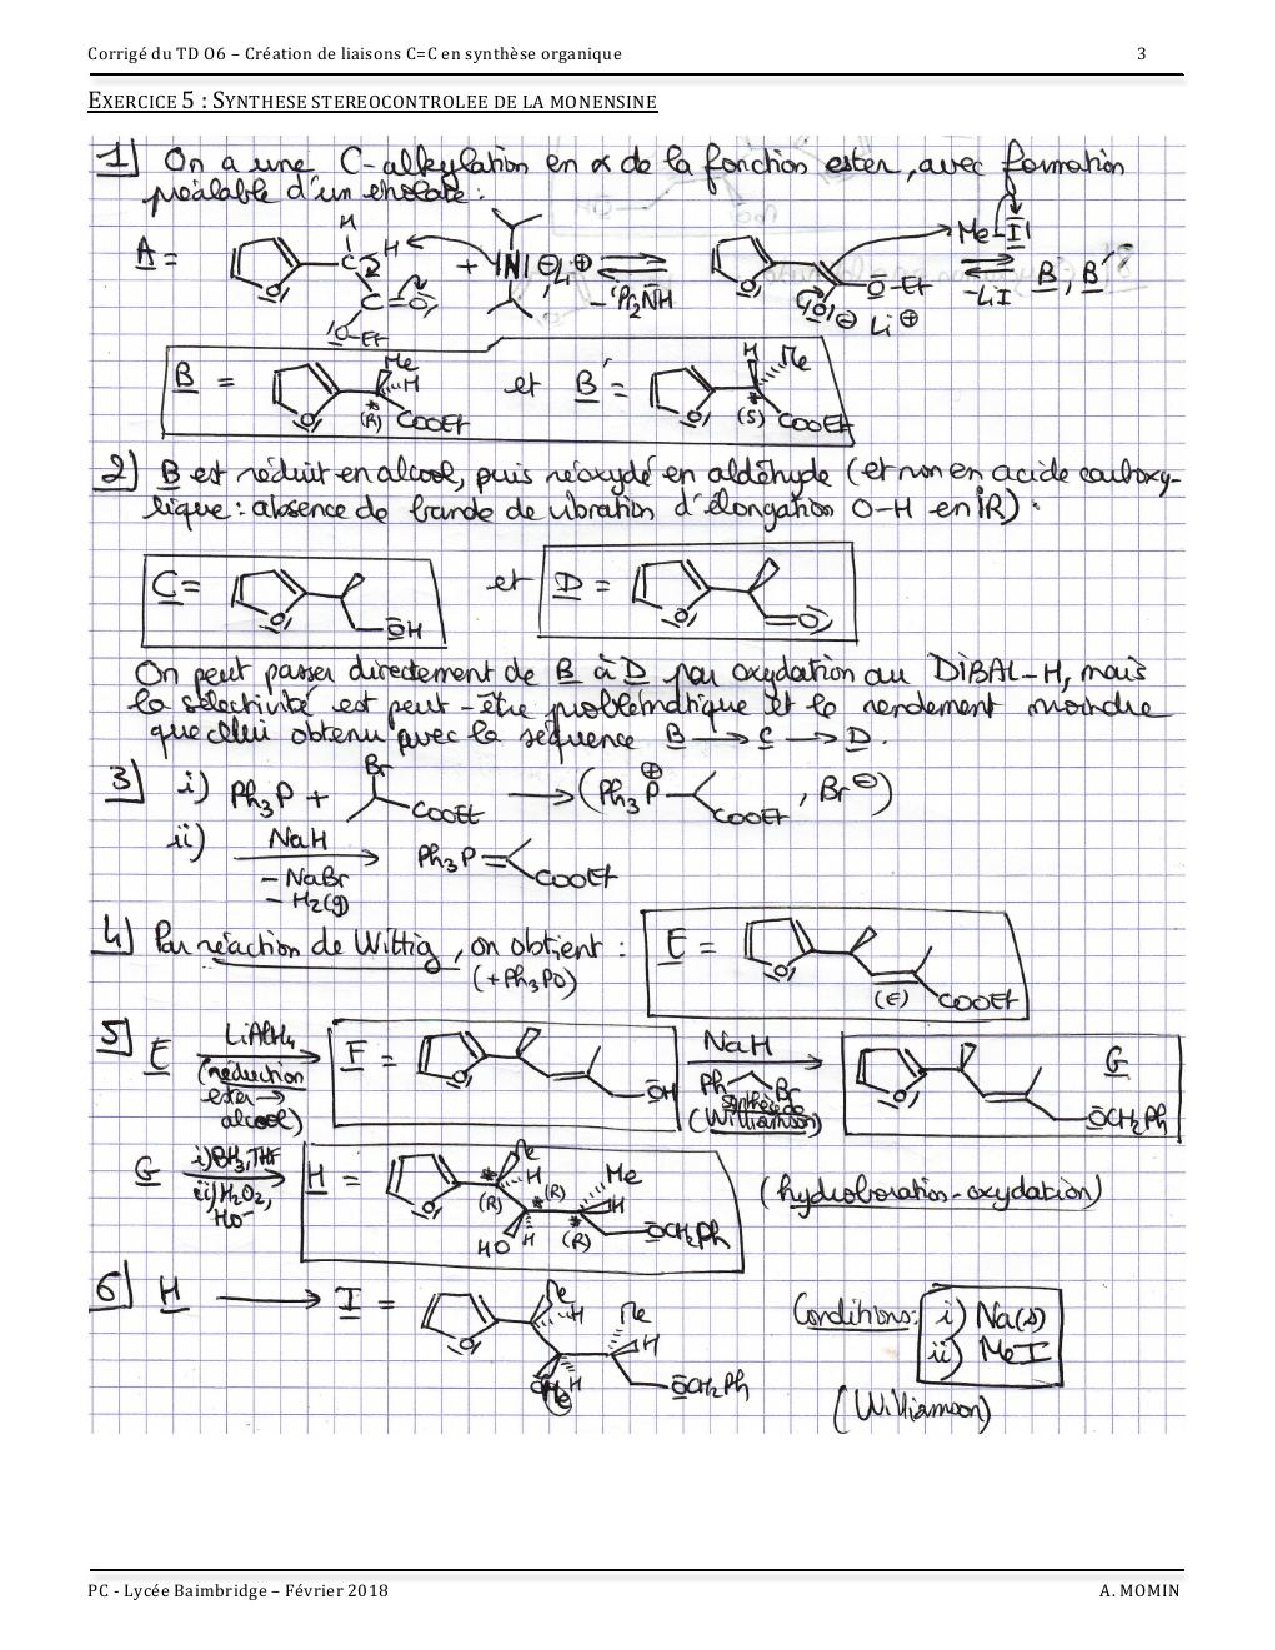 Corrigé du TD O6 – Création de liaisons C=C en synthèse organique 3
EXERCICE 5 : SYNTHESE STEREOCONTROLEE DE LA MONENSINE
1) On a une C-alkylation en α de la fonction ester, avec formation
préalable d'un énolate :
A = H H C C=O O-Et + |N| ⊖ Li⊕ ⇌ -iPr2NH O-Et |O|⊖ Li⊕ Me-I| ⇌ -LiI B, B'
B = Me H (R) COOEt et B' = H Me (S) COOEt
2) B est réduit en alcool, puis réoxydé en aldéhyde (et non en acide carboxy-
lique : absence de bande de vibration d'élongation O-H en IR).
C = OH et D = O
On peut passer directement de B à D par oxydation au DIBAL-H, mais
la sélectivité est peut-être problématique et le rendement moindre
que celui obtenu avec la séquence B → C → D.
3) i) Ph3P + Br COOEt → (Ph3P⊕ COOEt, Br⊖)
ii) NaH -NaBr -H2(g) → Ph3P= COOEt
4) Par réaction de Wittig, on obtient : E = O (E) COOEt
(+Ph3PO)
5) E LiAlH4 (réduction ester → alcool) F = O OH NaH Ph Br (synthèse de Williamson) G O OCH2Ph
G i) BH3, THF ii) H2O2, HO- H = O Me H (R) (R) HO H (R) Me H OCH2Ph (hydroboration-oxydation)
6) H → I = O Me H Me H OMe H OCH2Ph Conditions : i) Na(s)
ii) MeI
(Williamson)
PC - Lycée Baimbridge – Février 2018 A. MOMIN